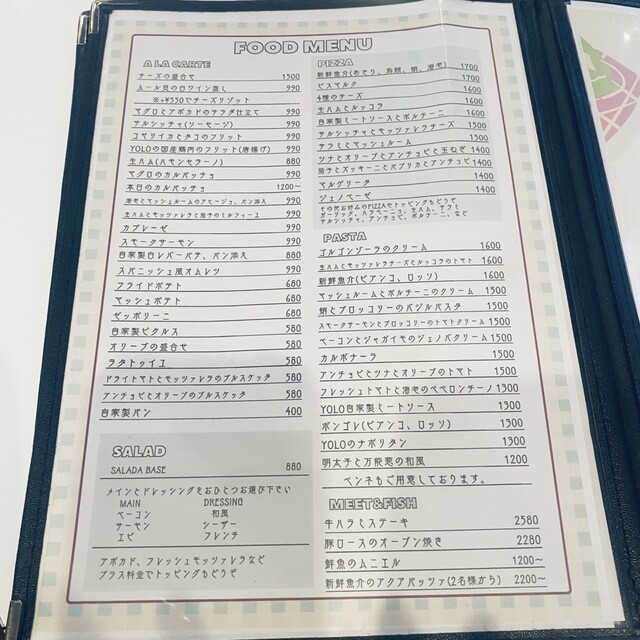 FOOD MENU
A LA CARTE
チーズの盛合せ 1500
ムール貝の白ワイン蒸し 990
※+¥550でチーズリゾット
マグロとアボカドのサラダ仕立て 990
サルシッチャ(ソーセージ) 990
コヤリイカとタコのフリット 990
YOLOの国産鶏肉のフリット(唐揚げ) 990
生ハム(ハモンセラーノ) 880
マグロのカルパッチョ 990
本日のカルパッチョ 1200〜
海老とマッシュルームのアヒージョ、パン添え 990
生ハムとモッツァレラと茄子のミルフィーユ 990
カプレーゼ 990
スモークサーモン 990
自家製白レバーパテ、パン添え 880
スパニッシュ風オムレツ 990
フライドポテト 680
マッシュポテト 680
ゼッポリーニ 680
自家製ピクルス 580
オリーブの盛合せ 580
ラタトゥイユ 580
ドライトマトとモッツァレラのブルスケッタ 580
アンチョビとオリーブのブルスケッタ 580
自家製パン 400
SALAD
SALADA BASE 880
メインとドレッシングをおひとつお選び下さい
MAIN DRESSING
ベーコン 和風
サーモン シーザー
エビ フレンチ
アボカド、フレッシュモッツァレラなど
プラス料金でトッピングもどうぞ
PIZZA
新鮮魚介(あさり、烏賊、蛸、海老) 1700
ビスマルク 1700
4種のチーズ 1600
生ハムとルッコラ 1600
自家製ミートソースとポルチーニ 1600
サルシッチャとモッツァレラチーズ 1500
サラミとマッシュルーム 1500
ツナとオリーブとアンチョビと玉ねぎ 1400
茄子とズッキーニとパプリカとアンチョビ 1400
マルゲリータ 1400
ジェノベーゼ 1400
その他お好みのPIZZAやトッピングもどうぞ
ガーリック、ハラペーニョ、生ハム、サラミ
サルシッチャ、アンチョビ、ポルチーニ、など
PASTA
ゴルゴンゾーラのクリーム 1600
生ハムとモッツァレラチーズとルッコラのトマト 1600
新鮮魚介(ビアンコ、ロッソ) 1600
マッシュルームとポルチーニのクリーム 1500
蛸とブロッコリーのバジルパスタ 1500
スモークサーモンとブロッコリーのトマトクリーム 1500
ベーコンとジャガイモのジェノバクリーム 1500
カルボナーラ 1500
アンチョビとツナとオリーブのトマト 1500
フレッシュトマトと海老のペペロンチーノ 1300
YOLO自家製ミートソース 1300
ボンゴレ(ビアンコ、ロッソ) 1300
YOLOのナポリタン 1300
明太子と万能葱の和風 1200
ペンネもご用意しております。
MEET&FISH
牛ハラミステーキ 2580
豚ロースのオーブン焼き 2280
鮮魚のムニエル 1200〜
新鮮魚介のアクアパッツァ(2名様から) 2200〜